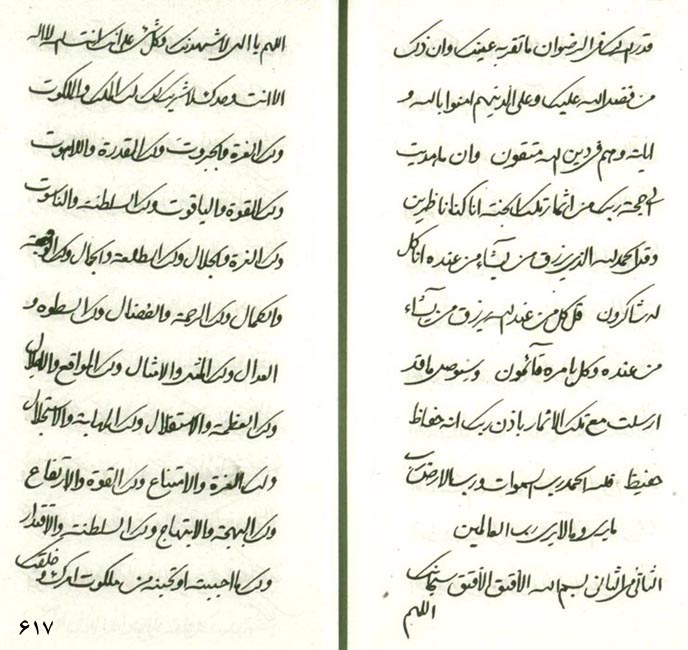 قدر لك فى الرضوان ما تقر به عينك وان ذلك
من فضل الله عليك وعلى الذينهم امنوا بالله و
اياته وهم فى دين الله متقون وان ما اهديت
الى حجة ربك من اثمار تلك الجنة انا كنا ناظرين
وقل الحمد لله الذى يرزق من يشاء من عنده انا كل
له شاكرون قل كل من عند الله يرزق من يشاء
من عنده وكل بامره قائمون وسنوصل ما قد
ارسلت مع تلك الاثمار باذن ربك انه حفاظ
حفيظ فلله الحمد رب السموات ورب الارض رب
ما يرى وما لا يرى رب العالمين
الثانى من الثانى بسم الله الأفتق الأفتق سبحانك
اللهم
اللهم يا الهى لاشهدنك وكل شئ على انك انت الله لا اله
الا انت وحدك لا شريك لك لك الملك والملكوت
ولك العزة والجبروت ولك القدرة واللاهوت
ولك القوة والياقوت ولك السلطنة والناسوت
ولك العزة والجلال ولك الطلعة والجمال ولك الوجهة
والكمال ولك الرحمة والفضال ولك السطوة و
العدال ولك المثل والامثال ولك المواقع والاجلال
ولك العظمة والاستقلال ولك المهابة والاستجلال
ولك العزة والامتناع ولك القوة والارتفاع
ولك البهجة والابتهاج ولك السلطنة والاقتدار
ولك ما احببته او تحبنه من ملكوت امرك وخلقك
۶۱۷